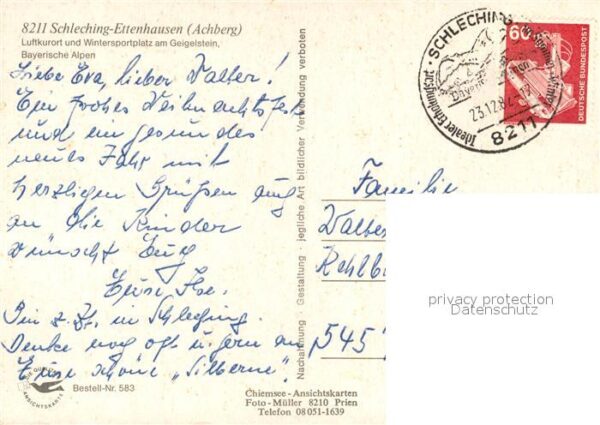 8211 Schleching-Ettenhausen (Achberg)
Luftkurort und Wintersportplatz am Geigelstein,
Bayerische Alpen
Liebe Eva, lieber Walter!
Ein frohes Weihnachtsfest
und ein gesundes
neues Jahr mit
herzlichen Grüßen auch
an die Kinder
wünscht Euch
Eure Ilse.
Bin z. Zt. in Schleching.
Denke noch oft u. gern an
Eure schöne "Silberne".
DIE GUTE
ANSICHTSKARTE
Bestell-Nr. 583
Nachahmung · Gestaltung · jegliche Art bildlicher Verwendung verboten
Chiemsee-Ansichtskarten
Foto-Müller 8210 Prien
Telefon 08051-1639
SCHLECHING
23.12.82-17
8211
Idealer Erholungsort
60
DEUTSCHE BUNDESPOST
Familie
Walter
545
privacy protection
Datenschutz